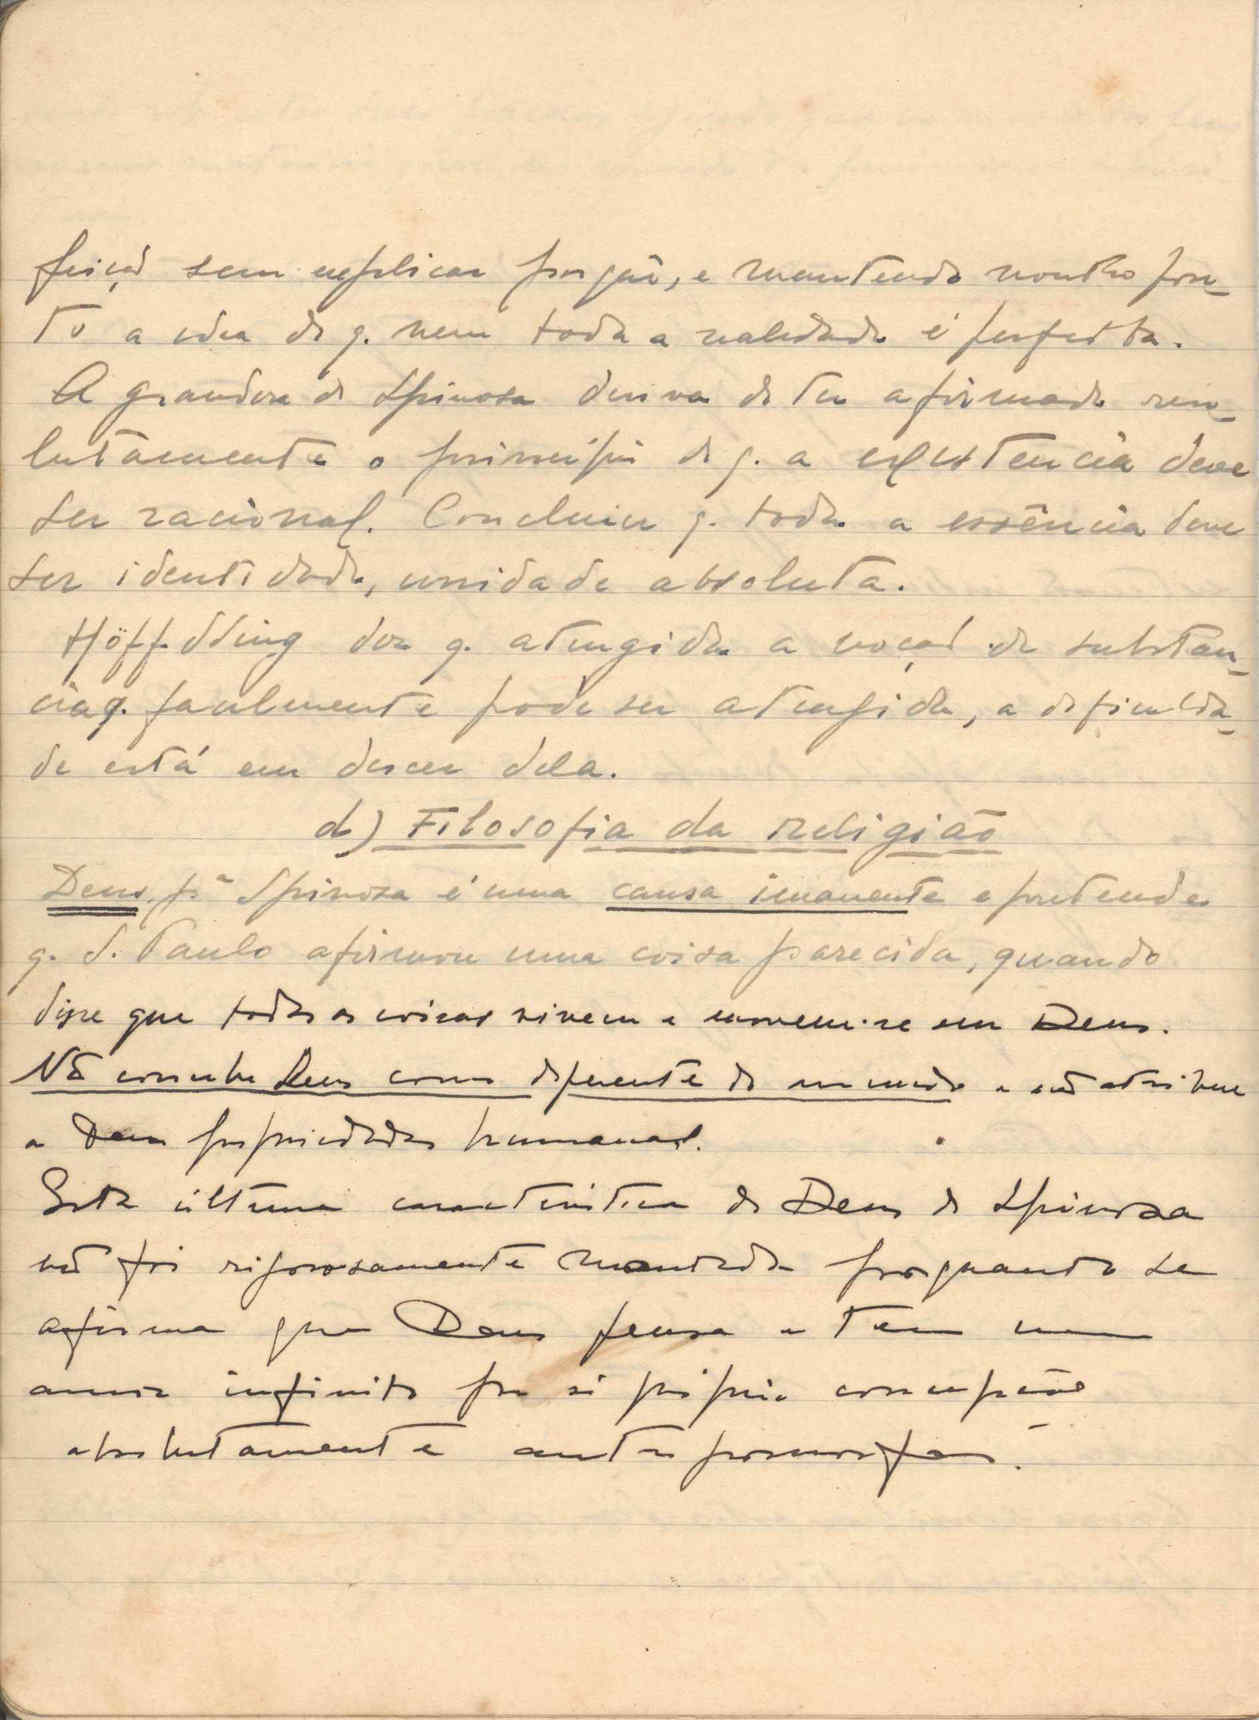 feiçaõ sem explicar porquê, e mantendo noutro pon-
to a idea de q. nem toda a realidade é perfeita.
A grandeza de Spinosa deriva de ter afirmado reso-
lutamente o princípio de q. a existencia deve
ser racional. Concluiu q. toda a essência deve
ser identidade, unidade absoluta.
Höffdding diz q. atingida a noçaõ de substan-
cia q. facilmente pode ser atingida, a dificulda-
de está em descer dela.
d) Filosofia da religião
Deus pª Spinosa é uma causa imanente e pretende
q. S. Paulo afirmou uma coisa parecida, quando
disse que todas as coisas vivem e movem-se em Deus.
Nã concebe Deus como diferente do mundo e nã atribue
a Deus propriedades humanas.
Esta última caracteristica do Deus de Spinosa
nã foi rigorosamente mantida porquanto se
afirma que Deus pensa e tem um
amor infinito por si próprio concepção
absolutamente antropomorfa.